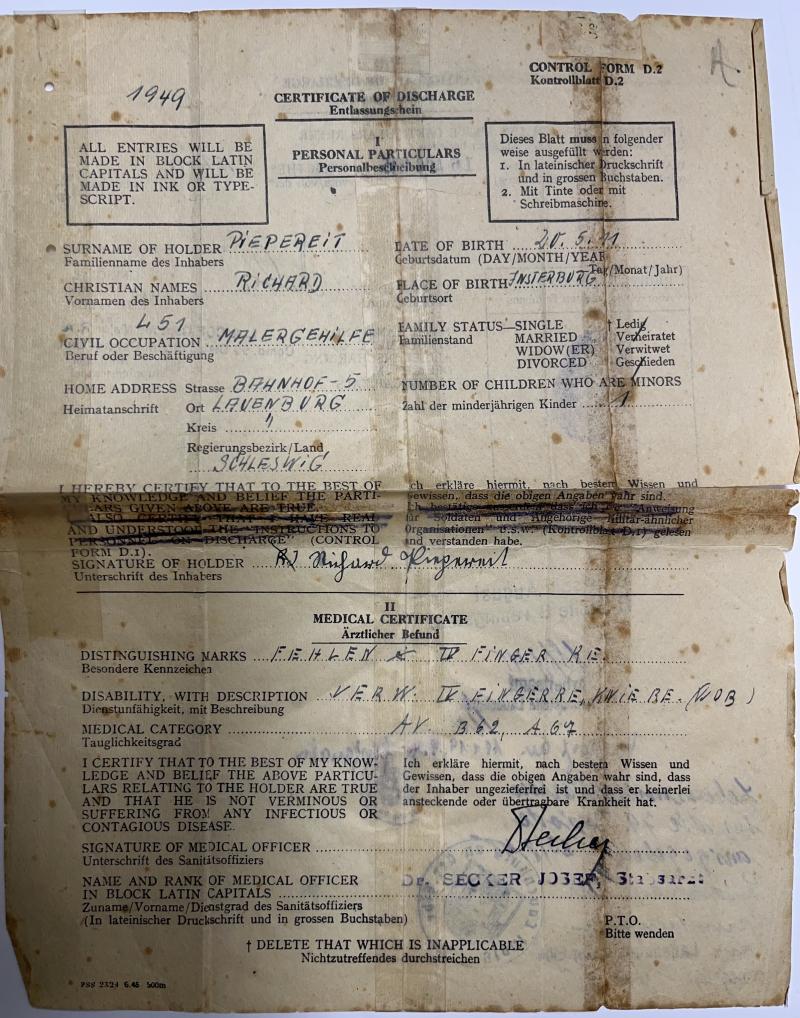 CONTROL FORM D.2
Kontrollblatt D.2
1949
CERTIFICATE OF DISCHARGE
Entlassungschein
I
PERSONAL PARTICULARS
Personalbeschreibung
ALL ENTRIES WILL BE
MADE IN BLOCK LATIN
CAPITALS AND WILL BE
MADE IN INK OR TYPE-
SCRIPT.
Dieses Blatt muss in folgender
weise ausgefüllt werden:
1. In lateinischer Druckschrift
und in grossen Buchstaben.
2. Mit Tinte oder mit
Schreibmaschine.
SURNAME OF HOLDER PIEPEREIT
Familienname des Inhabers
DATE OF BIRTH 20.5.11
Geburtsdatum (DAY/MONTH/YEAR
Tag/Monat/Jahr)
CHRISTIAN NAMES RICHARD
Vornamen des Inhabers
PLACE OF BIRTH INSTERBURG
Geburtsort
451
CIVIL OCCUPATION MALERGEHILFE
Beruf oder Beschäftigung
FAMILY STATUS—SINGLE † Ledig
Familienstand MARRIED Verheiratet
WIDOW(ER) Verwitwet
DIVORCED Geschieden
HOME ADDRESS Strasse BAHNHOF-5
Heimatanschrift Ort LAUENBURG
Kreis "
Regierungsbezirk/Land
SCHLESWIG
NUMBER OF CHILDREN WHO ARE MINORS
Zahl der minderjährigen Kinder 1
I HEREBY CERTIFY THAT TO THE BEST OF
MY KNOWLEDGE AND BELIEF THE PARTI-
CULARS GIVEN ABOVE ARE TRUE.
I ALSO CERTIFY THAT I HAVE READ
AND UNDERSTOOD THE "INSTRUCTIONS TO
PERSONNEL ON DISCHARGE" (CONTROL
FORM D.1).
Ich erkläre hiermit, nach bestem Wissen und
Gewissen, dass die obigen Angaben wahr sind.
Ich bestätige ausserdem dass ich die "Anweisung
für Soldaten und Angehörige Militär-ähnlicher
Organisationen" u.s.w. (Kontrollblatt D.1) gelesen
und verstanden habe.
SIGNATURE OF HOLDER Richard Piepereit
Unterschrift des Inhabers
II
MEDICAL CERTIFICATE
Ärztlicher Befund
DISTINGUISHING MARKS FEHLEN IV FINGER RE.
Besondere Kennzeichen
DISABILITY, WITH DESCRIPTION VERW. IV FINGER RE, KNIE BE.
Dienstunfähigkeit, mit Beschreibung
MEDICAL CATEGORY AV. B62, A 67
Tauglichkeitsgrad
I CERTIFY THAT TO THE BEST OF MY KNOW-
LEDGE AND BELIEF THE ABOVE PARTICU-
LARS RELATING TO THE HOLDER ARE TRUE
AND THAT HE IS NOT VERMINOUS OR
SUFFERING FROM ANY INFECTIOUS OR
CONTAGIOUS DISEASE.
Ich erkläre hiermit, nach bestem Wissen und
Gewissen, dass die obigen Angaben wahr sind, dass
der Inhaber ungezieferfrei ist und dass er keinerlei
ansteckende oder übertragbare Krankheit hat.
SIGNATURE OF MEDICAL OFFICER
Unterschrift des Sanitätsoffiziers
NAME AND RANK OF MEDICAL OFFICER
IN BLOCK LATIN CAPITALS Dr. SECKER JOSEF, Stabsarzt
Zuname/Vorname/Dienstgrad des Sanitätsoffiziers
(In lateinischer Druckschrift und in grossen Buchstaben)
P.T.O.
Bitte wenden
† DELETE THAT WHICH IS INAPPLICABLE
Nichtzutreffendes durchstreichen
PSS 2324 6.45 500m